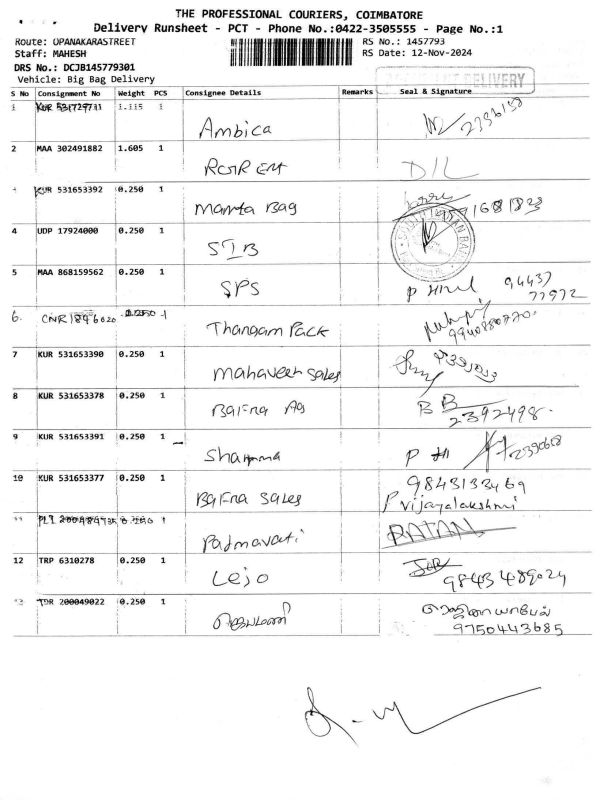 THE PROFESSIONAL COURIERS, COIMBATORE
Delivery Runsheet - PCT - Phone No.:0422-3505555 - Page No.:1
Route: OPANAKARASTREET RS No.: 1457793
Staff: MAHESH RS Date: 12-Nov-2024
DRS No.: DCJB145779301
Vehicle: Big Bag Delivery
DELIVERY
S No Consignment No Weight PCS Consignee Details Remarks Seal & Signature
1 KUR 1.115 1 Ambica 2396158
2 MAA 302491882 1.605 1 DIL
KUR 531653392 0.250 1 Mamta Bag
4 UDP 17924000 0.250 1 SIB
5 MAA 868159562 0.250 1 SPS P 94437
77972
6. CNR 1 Thangam Pack
7 KUR 531653390 0.250 1 Mahaveer Sales
8 KUR 531653378 0.250 1 Bafna Ag B B
2392498.
9 KUR 531653391 0.250 1 Sharma P
10 KUR 531653377 0.250 1 Bafna Sales 9843133469
P vijayalakshmi
1 Padmavati RATAN
12 TRP 6310278 0.250 1 Lejo
9843489024
200049022 0.250 1 ஜெயமணி
9750443685